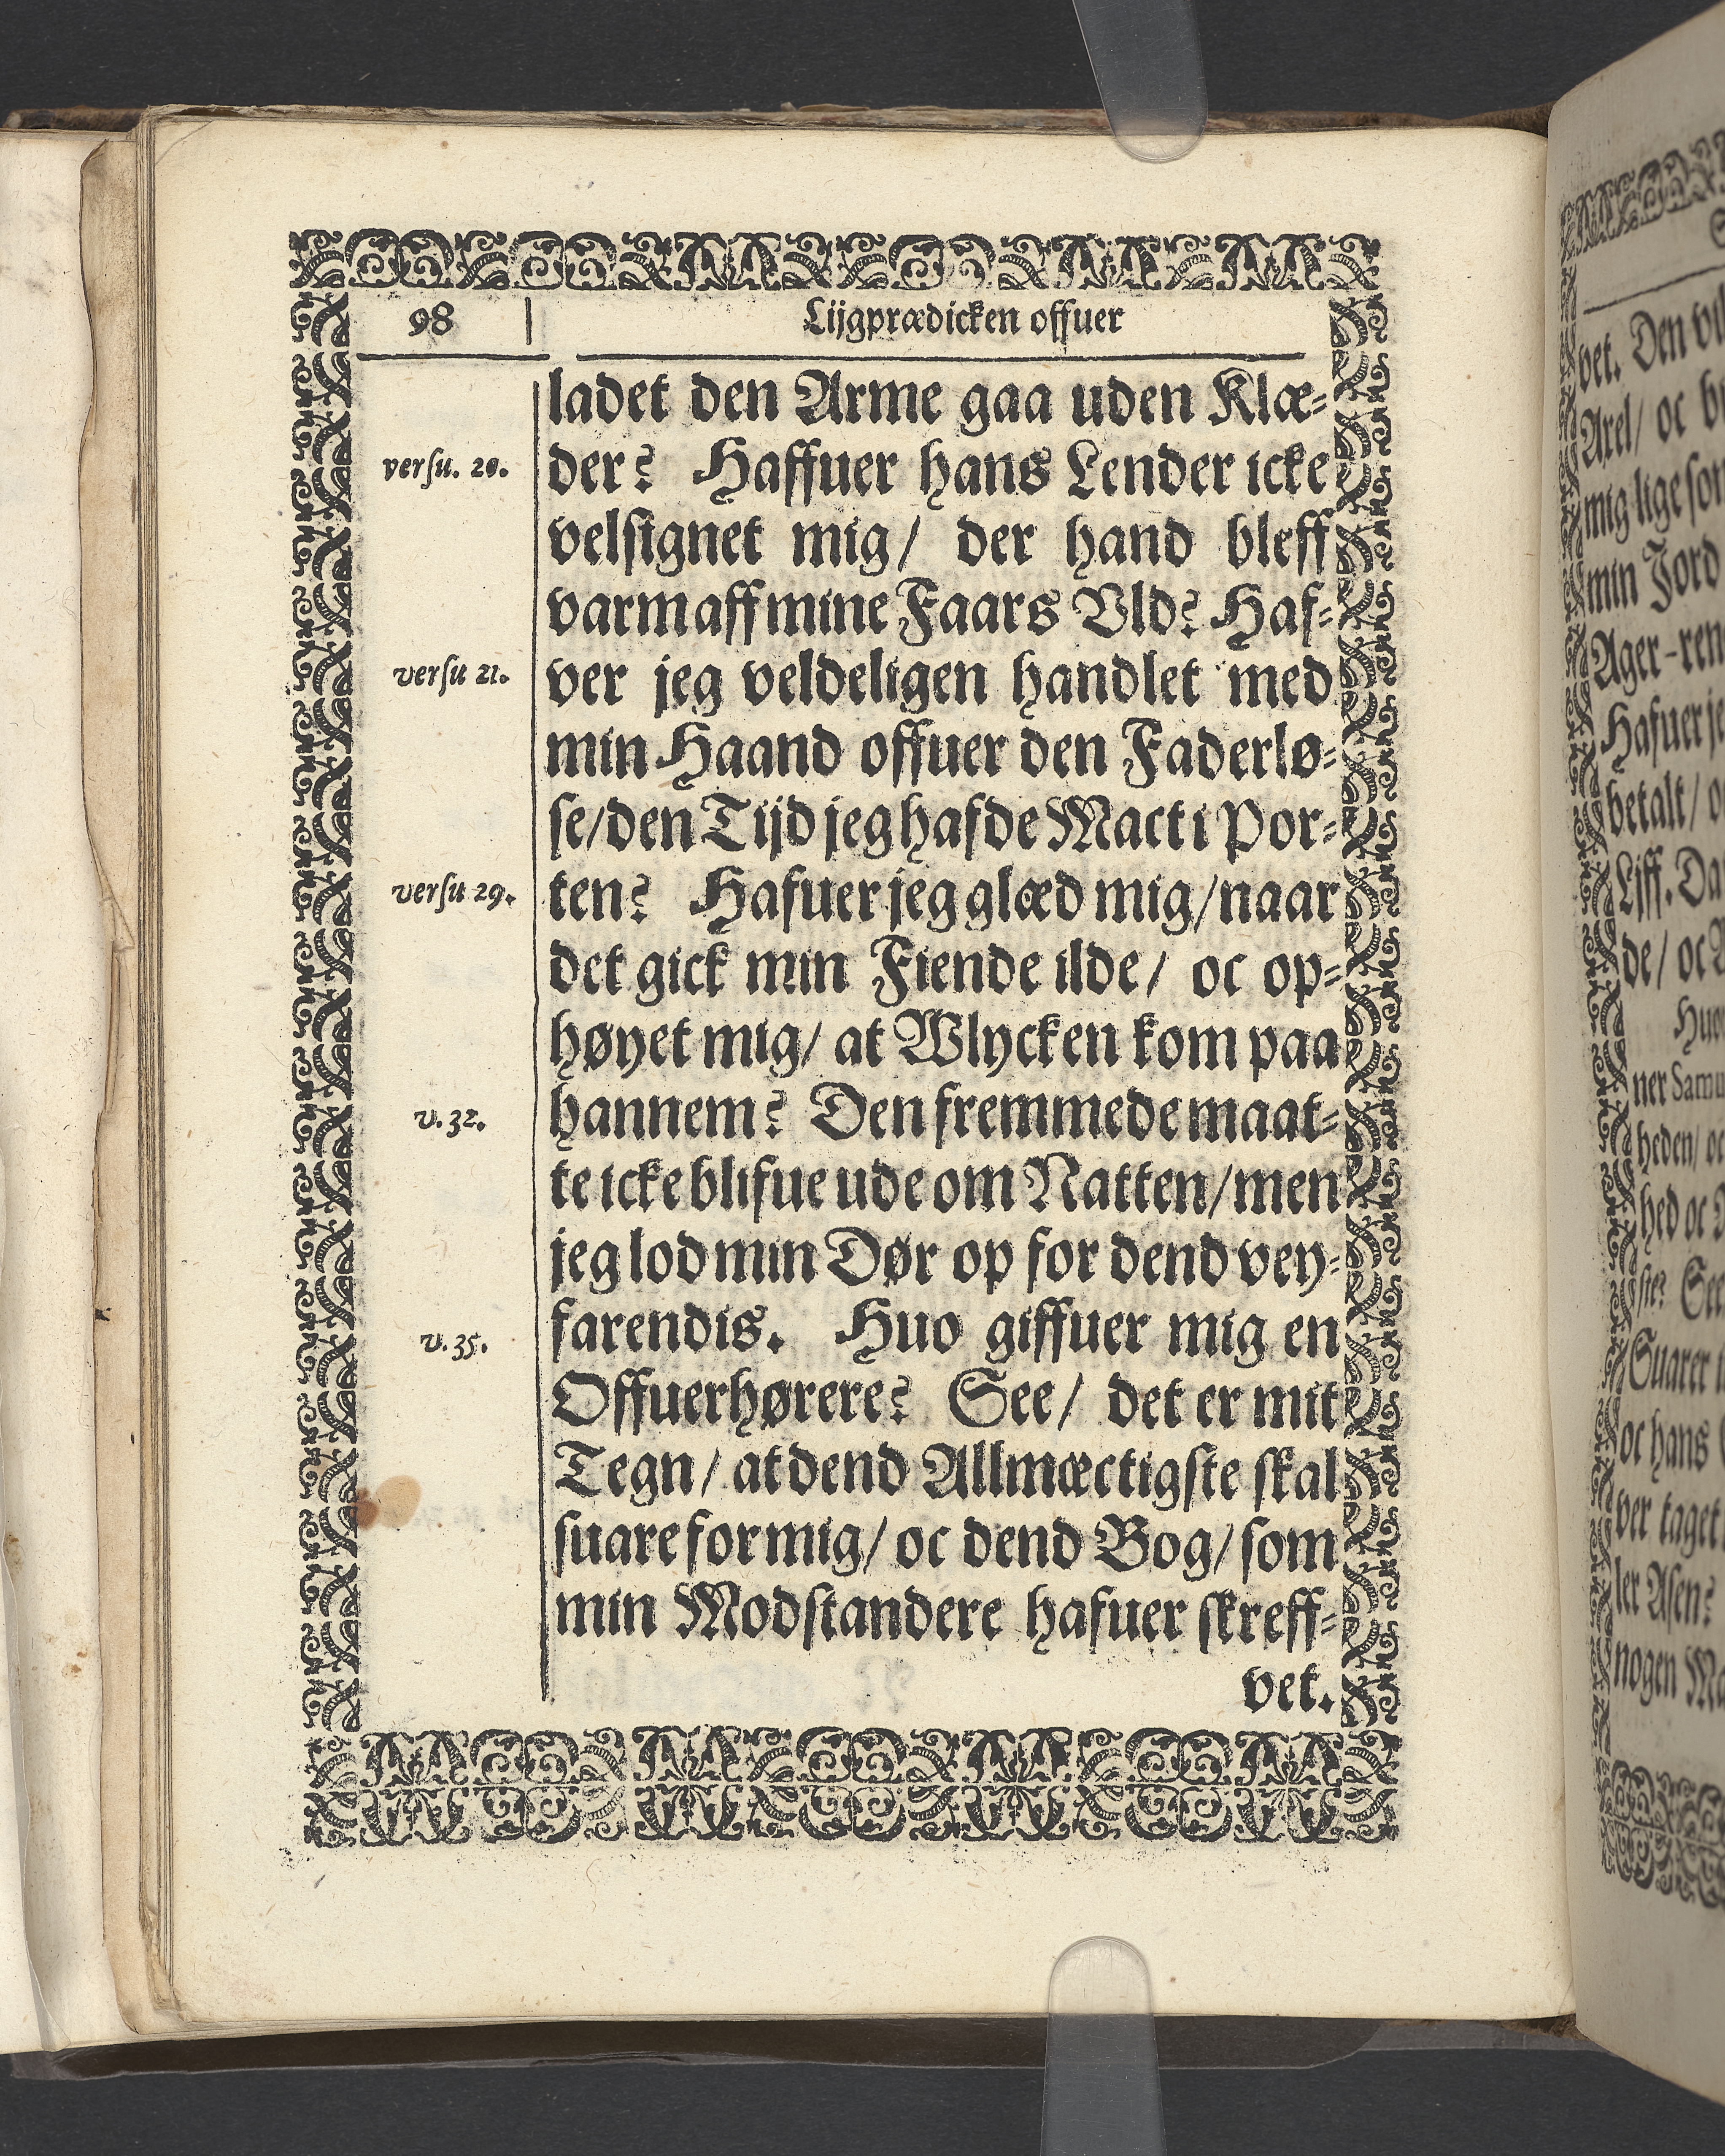 98
Lijgprædicken offuer
ladet den Arme gaa uden Klæ-
versu. 20.
der? Haffuer hans Lender icke
velsignet mig/ der hand bleff
varm aff mine Faars Vld? Haf-
versu 21.
ver jeg veldeligen handlet med
min Haand offuer den Faderlø-
se/ den Tijd jeg hafde Mact i Por-
versu 29.
ten? Hafuer jeg glæd mig/ naar
det gick min Fiende ilde/ oc op-
høyet mig/ at Wlycken kom paa
v. 32.
hannem? Den fremmede maat-
te icke blifue ude om Natten/ men
jeg lod min Dør op for dend vey-
v. 35.
farendis. Huo giffuer mig en
Offuerhørere? See/ det er mit
Tegn/ at dend Allmæctigste skal
suare for mig/ oc dend Bog/ som
min Modstandere hafuer skreff-
vet.
vet. Den
Axel/ oc
mig lige som
min Jord
Ager-ren
Hafuer je
betalt/
Liff. Da
de/ oc
Hue
ner Samu
heden/ oc
hed oc
ste? See
Suarer
oc hans
ver taget
ler Asen?
nogen